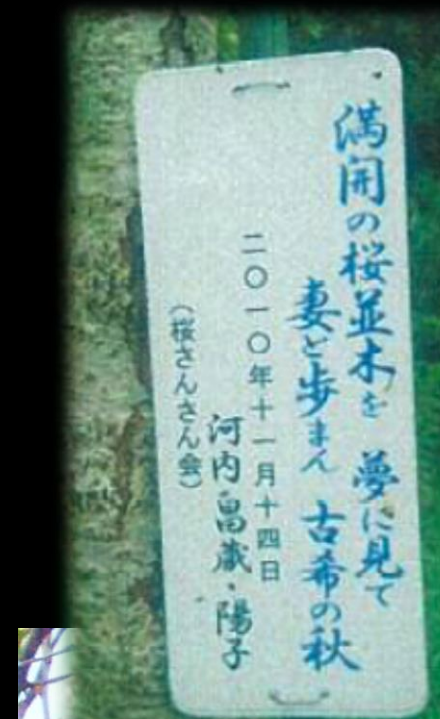 満開の桜並木を 夢に見て
妻と歩まん 古希の秋
二〇一〇年十一月十四日
河内畠蔵・陽子
(桜さんさん会)